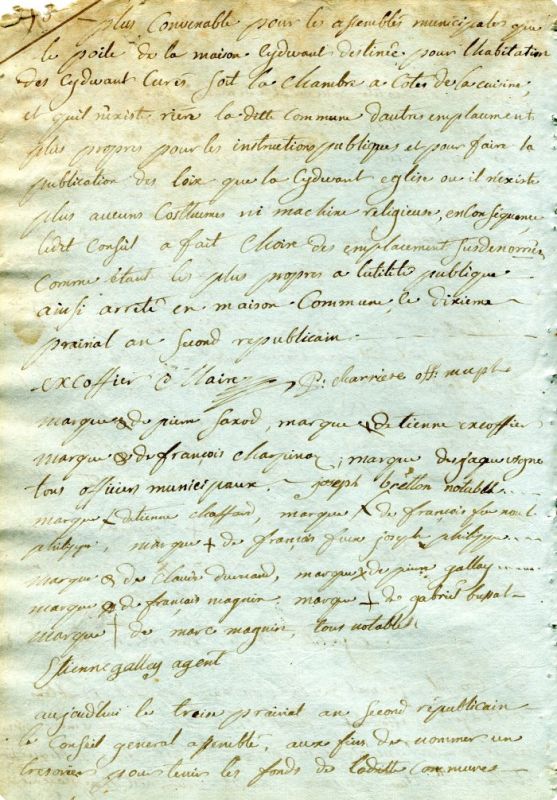 plus Convenable pour les assemblés municipales que
le poile de la maison Cydvant destinée pour l'habitation
des Cydvant Curés soit la Chambre a Cotés de la cuisine,
et quil n'existe riere la ditte Commune dautre emplacement
plus propres pour les instructions publiques et pour faire la
publication des loix que la Cydvant eglise ou il n'existe
plus aucuns Costhumes ni machine religieuse, en Conséquance
ledit Conseil a fait Choix des emplacement susdenommés
Comme étant les plus propres a lutilité publique
ainsi arreté en maison Commune le dixieme
prairial an second republicain
excoffier Maire P. charriere off. mupl
marque de pierre favod, marque detienne excoffier
marque de françois Charpinaz, marque de jaque vogne
tous officiers municipaux. joseph bretton notable
marque detienne chaffard, marque de françois feu noel
philippe, marque de françois feux joseph philippe
marque de Claude durand, marque de pierre galley
marque de françois magnin marque de gabriel bussat
marque de marc magnin, tous notables
Etienne galley agent
aujoud'lui le trein prairial an second républicain
le Conseil general assemblé, aux fins de nommer un
tresorier pour tenir les fonds de laditte commune